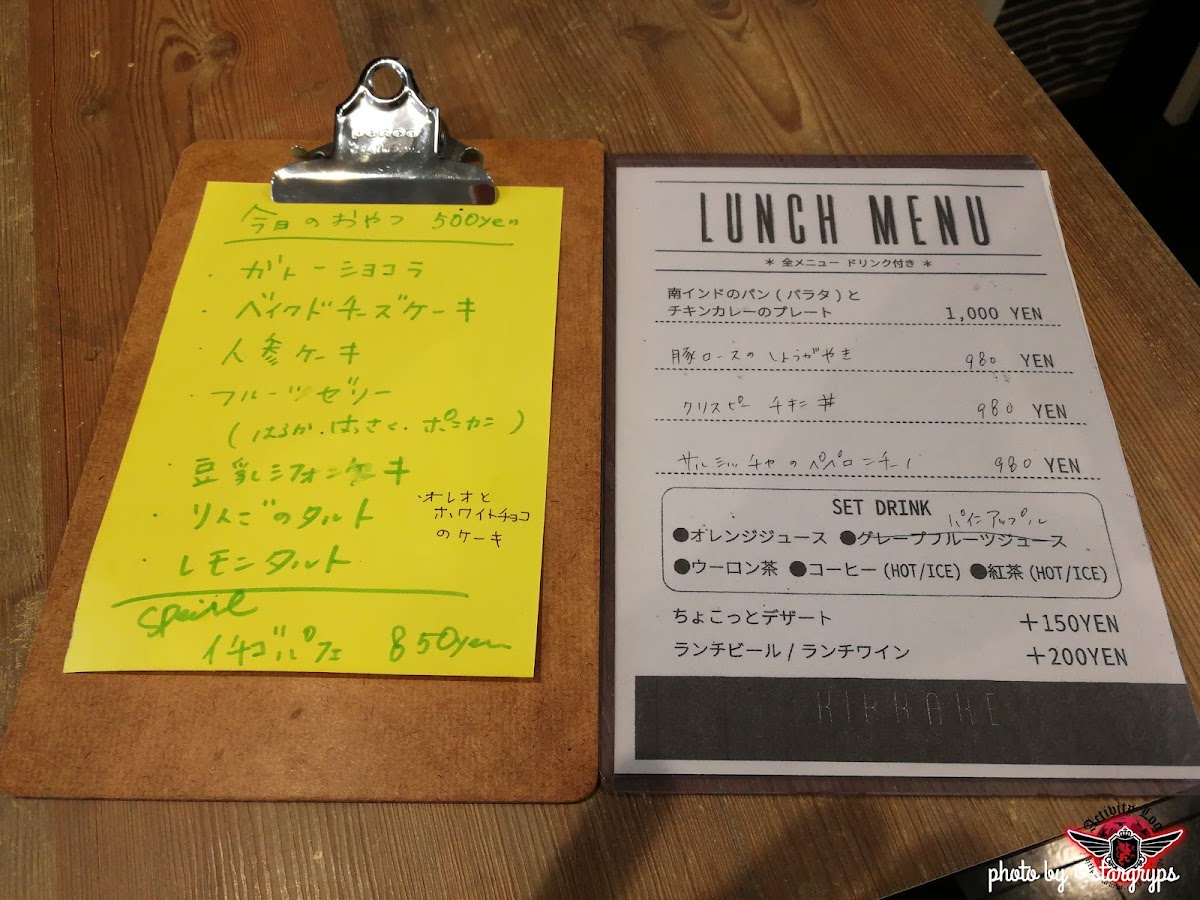 今日のおやつ 500yen
・ガトーショコラ
・ベイクドチーズケーキ
・人参ケーキ
・フルーツゼリー
(はるか・はっさく・ポンカン)
・豆乳シフォンケーキ
・りんごのタルト
・オレオと
ホワイトチョコ
のケーキ
・レモンタルト
イチゴパフェ 850yen
LUNCH MENU
* 全メニュー ドリンク付き *
南インドのパン(パラタ)と
チキンカレーのプレート 1,000 YEN
豚ロースのしょうがやき 980 YEN
クリスピーチキン丼 980 YEN
サルシッチャのペペロンチーノ 980 YEN
SET DRINK
パインアップル
●オレンジジュース ●グレープフルーツジュース
●ウーロン茶 ●コーヒー(HOT/ICE) ●紅茶(HOT/ICE)
ちょこっとデザート +150YEN
ランチビール/ランチワイン +200YEN
KIKKAKE
Activity Log
photo by @stargryps